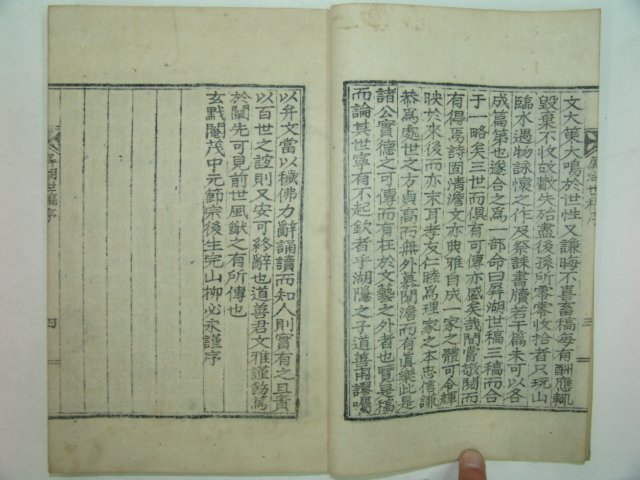 文大策大鳴於世性又謙晦不喜畜稿每有酬應輒
毀棄不收故散失殆盡後孫所零零收拾者只玩山
臨水遇物詠懷之作及祭誄書牘若干篇未可以各
成篇第也遂合之爲一部命曰屛湖世稿三稿而合
于一略矣三世而俱有可傳亦盛矣哉間嘗敬閱而
有得焉詩固淸澹文亦典雅自成一家之體可令輝
映於來後而亦末耳孝友仁睦爲理家之本忠信謙
恭爲處世之方貞高而無外慕閒澹而有眞樂此是
諸公實德之可傳而有在於文藝之外者也覽是稿
而論其世寧有不起欽者乎湖隱之子道善甫謬囑
以弁文當以穢佛力辭誦讀而知人則實有之且責
以百世之誼則又安可終辭也道善君文雅謹飭爲
於闡先可見前世風猷之有所傳也
玄黓閹茂中元節宗後生完山柳必永謹序
屛湖世稿序
三
屛湖世稿序
四